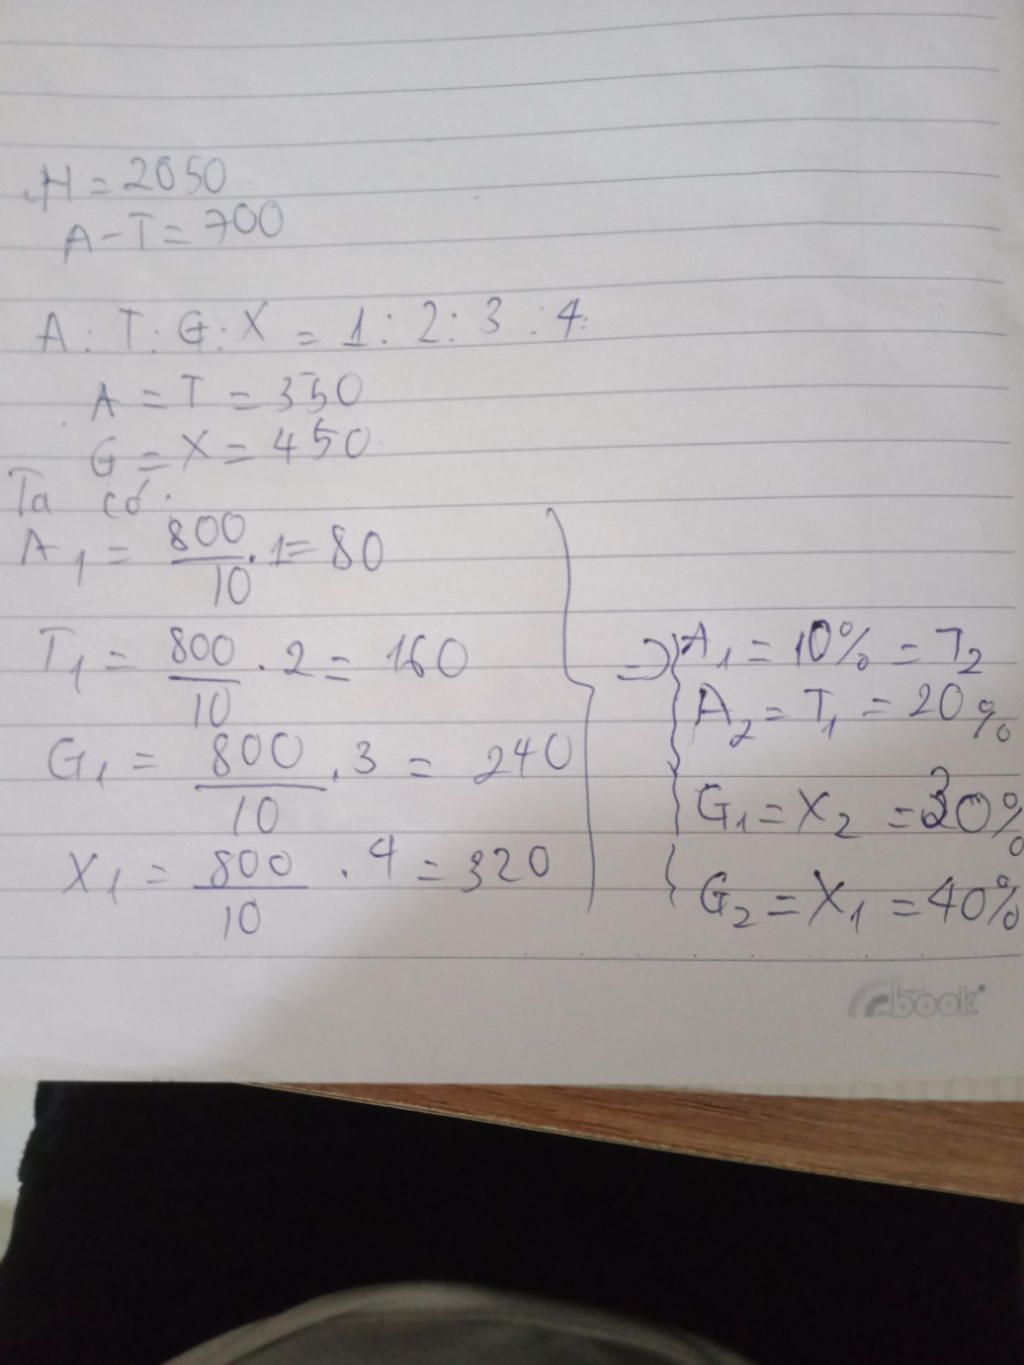 H = 2050
A - T = 700
A : T : G : X = 1 : 2 : 3 : 4 :
A = T = 350
G = X = 450
Ta có :
A₁ = 800/10 . 1 = 80
T₁ = 800/10 . 2 = 160
G₁ = 800/10 . 3 = 240
X₁ = 800/10 . 4 = 320
=> { A₁ = 10% = T₂
A₂ = T₁ = 20%
G₁ = X₂ = 30%
G₂ = X₁ = 40%
book